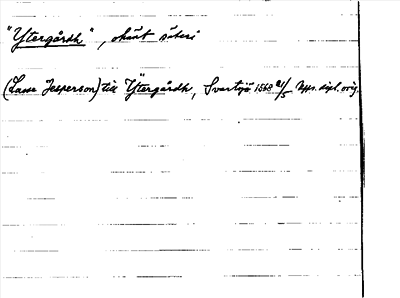 "Ytergårdh", okänt säteri
(Lasse Jesperson) till Ytergårdh, Svartsjö 1568 21/5 Upps. dipl. orig.